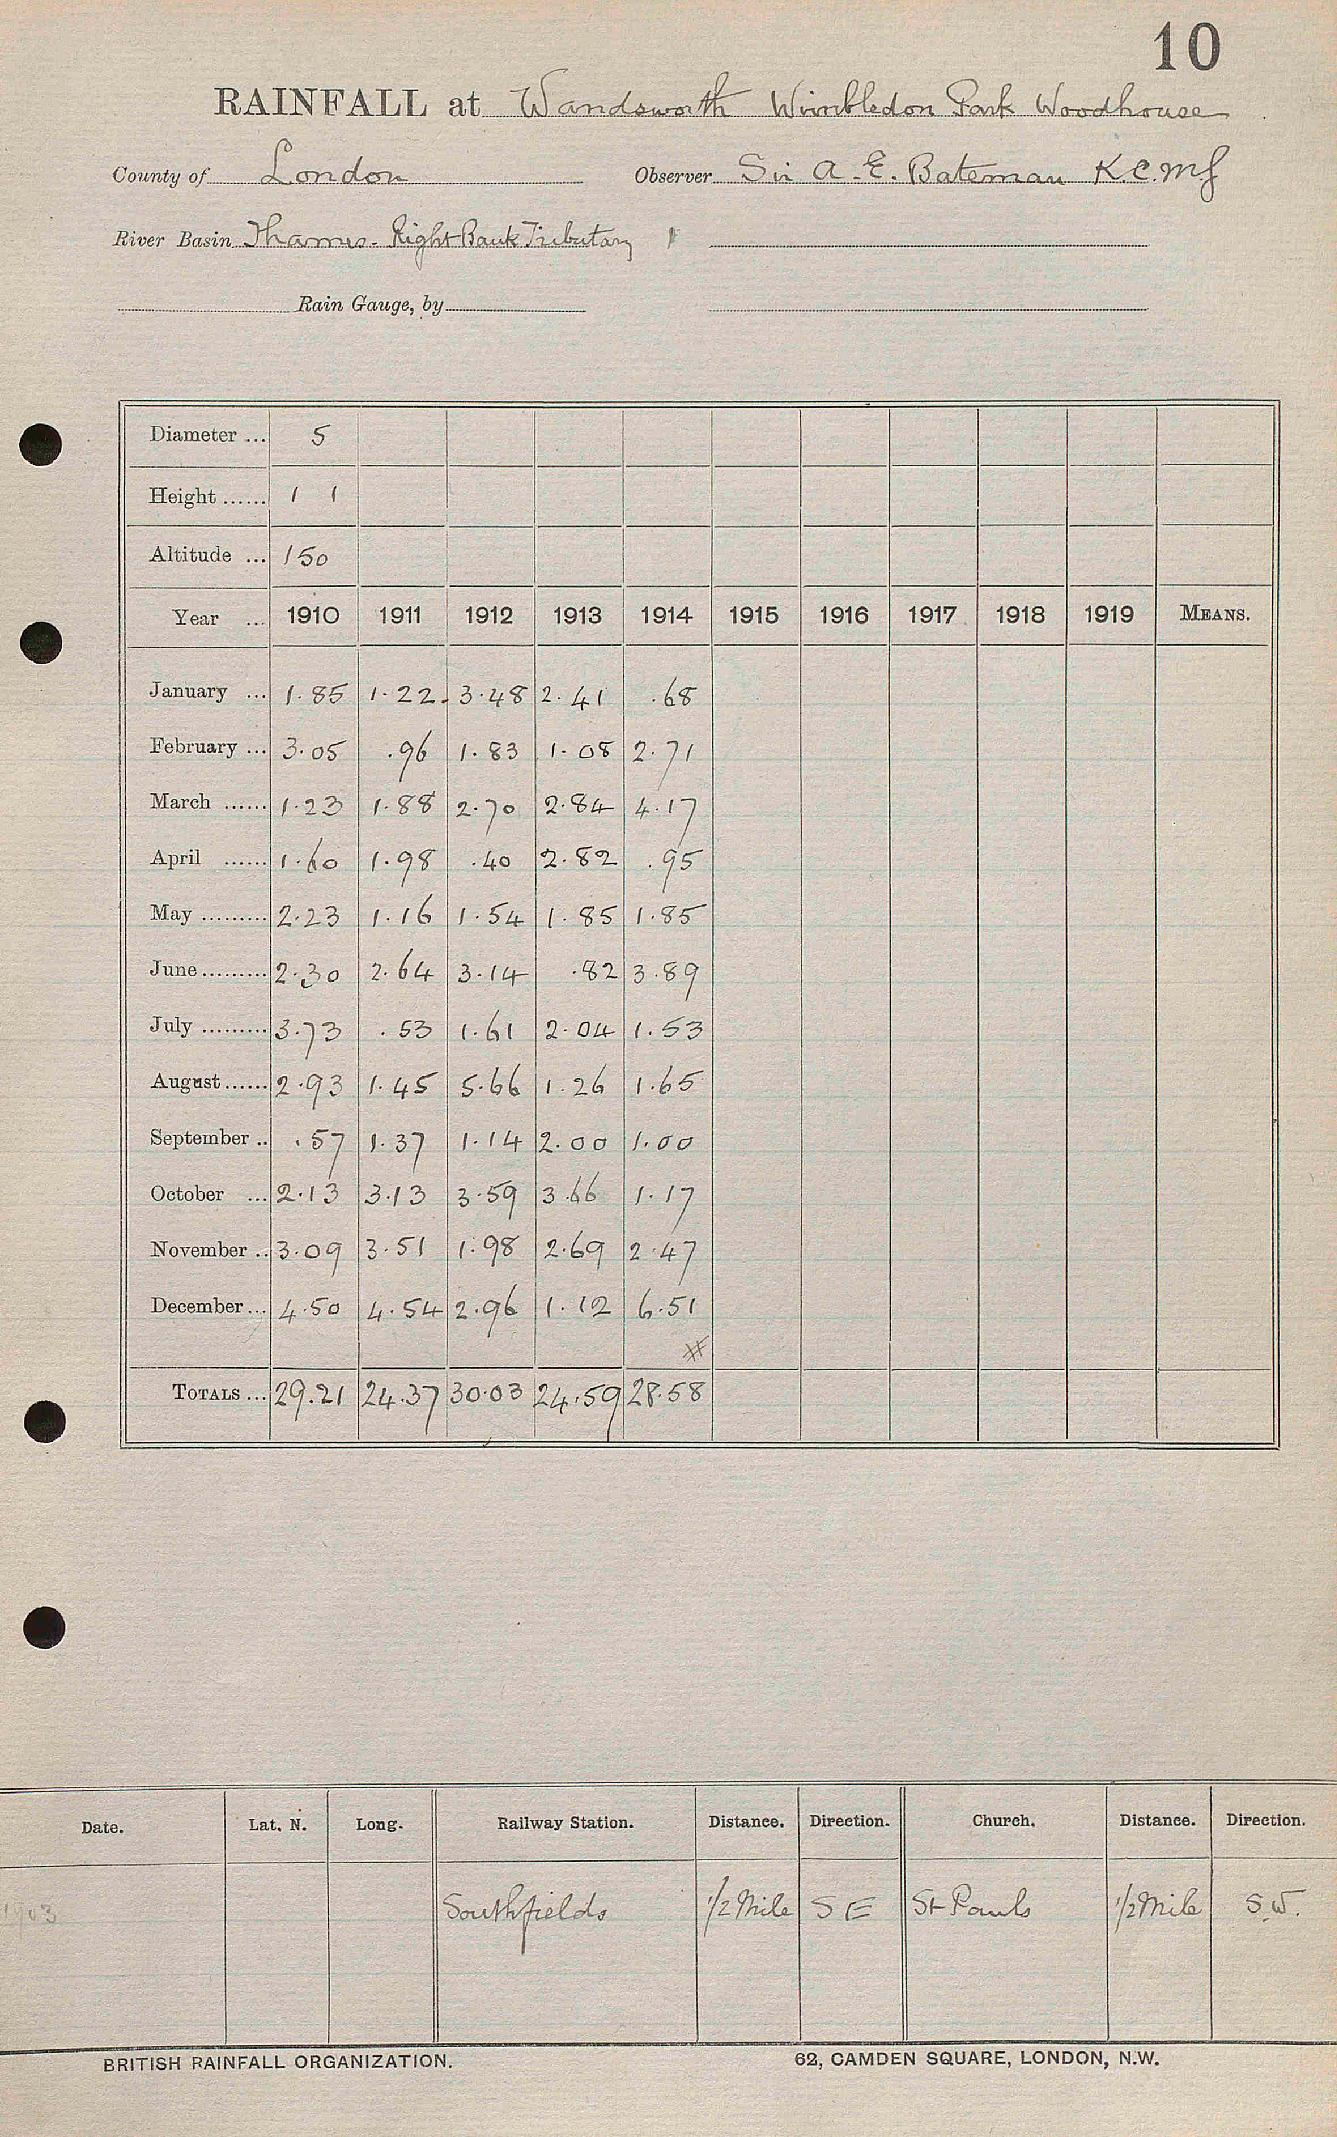 10
RAINFALL at Wandsworth Wimbledon Park Woodhouse
County of London Observer Sir A. E. Bateman K.C.M.G
River Basin Thames - Right Bank Tributary
Rain Gauge, by
Diameter ... 5
Height ...... 1 1
Altitude ... 150
Year ... 1910 1911 1912 1913 1914 1915 1916 1917 1918 1919 MEANS.
January ... 1.85 1.22 3.48 2.41 .68
February ... 3.05 .96 1.83 1.08 2.71
March ...... 1.23 1.88 2.70 2.84 4.17
April ...... 1.60 1.98 .40 2.82 .95
May ......... 2.23 1.16 1.54 1.85 1.85
June......... 2.30 2.64 3.14 .82 3.89
July ......... 3.73 .53 1.61 2.04 1.53
August...... 2.93 1.45 5.66 1.26 1.65
September .. .57 1.37 1.14 2.00 1.00
October ... 2.13 3.13 3.59 3.66 1.17
November .. 3.09 3.51 1.98 2.69 2.47
December... 4.50 4.54 2.96 1.12 6.51
#
TOTALS ... 29.21 24.37 30.03 24.59 28.58
Date. Lat. N. Long. Railway Station. Distance. Direction. Church. Distance. Direction.
1903 Southfields 1/2 Mile S E St Pauls 1/2 Mile S.W.
BRITISH RAINFALL ORGANIZATION. 62, CAMDEN SQUARE, LONDON, N.W.